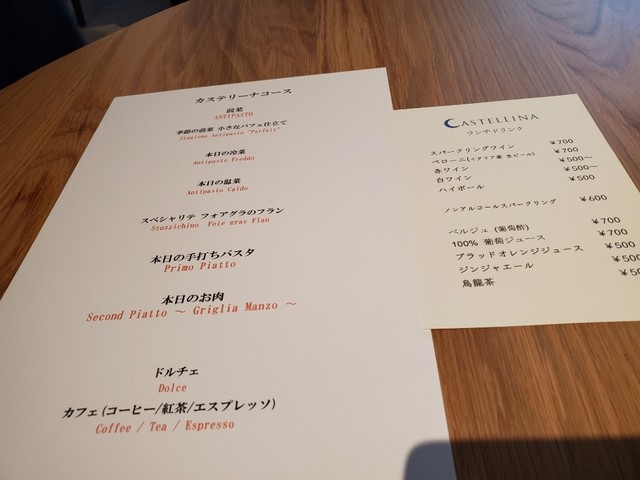 カステリーナコース
前菜
ANTIPASTO
季節の前菜 小さなパフェ仕立て
Stagione Antipasto "Parfait"
本日の冷菜
Antipasto Freddo
本日の温菜
Antipasto Caldo
スペシャリテ フォアグラのフラン
Stuzzichino Foie gras Flan
本日の手打ちパスタ
Primo Piatto
本日のお肉
Second Piatto ～ Griglia Manzo ～
ドルチェ
Dolce
カフェ(コーヒー/紅茶/エスプレッソ)
Coffee / Tea / Espresso
CASTELLINA
ランチドリンク
スパークリングワイン ￥700
ペローニ(イタリア産 生ビール) ￥700
赤ワイン ￥500～
白ワイン ￥500～
ハイボール ￥500
ノンアルコールスパークリング ￥600
ベルジュ (葡萄酢) ￥700
100% 葡萄ジュース ￥700
ブラッドオレンジジュース ￥500
ジンジャエール ￥500
烏龍茶